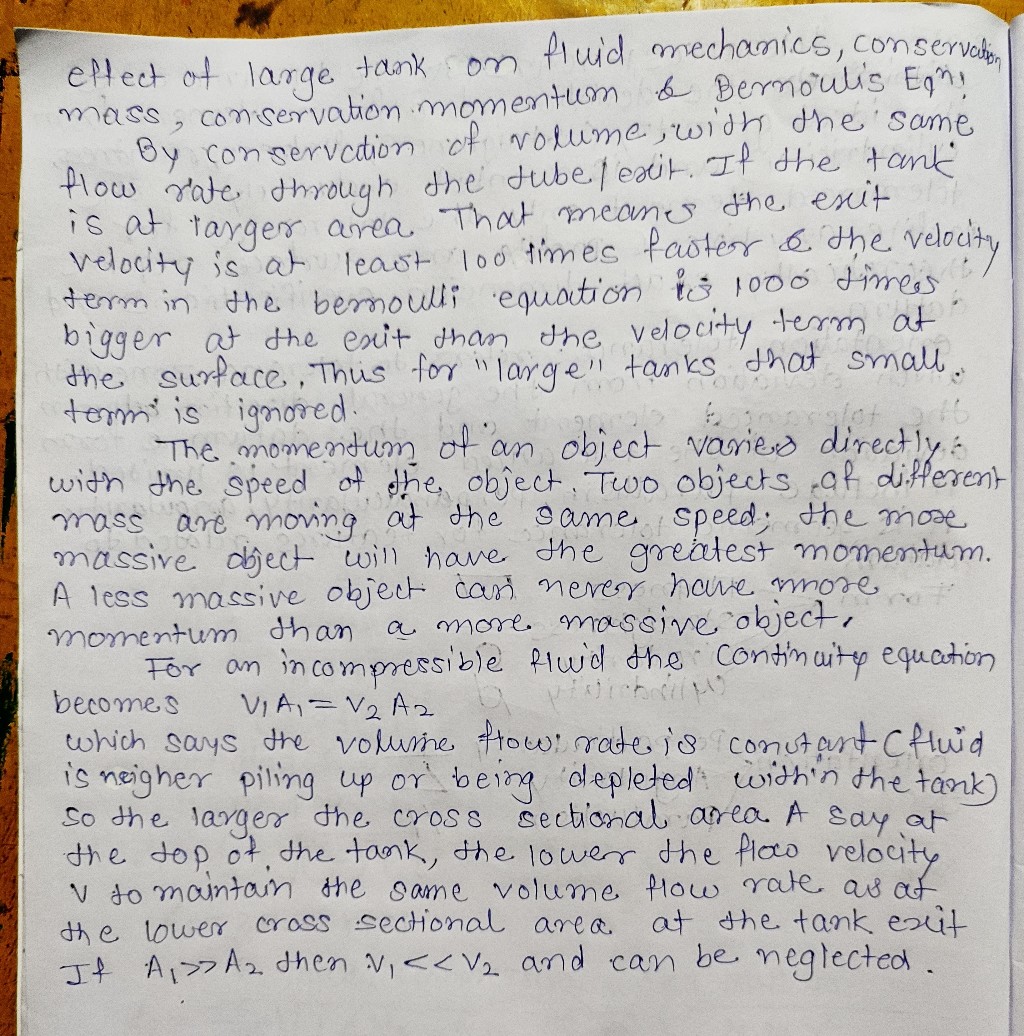 effect of large tank on fluid mechanics, conservation
mass, conservation momentum & Bernoulis Eqn!
By conservation of volume, with the same
flow rate through the tube/exit. If the tank
is at larger area That means the exit
velocity is at least 100 times faster & the velocity
term in the bernoulli equation is 1000 times
bigger at the exit than the velocity term at
the surface. Thus for "large" tanks that small
term is ignored.
The momentum of an object varies directly
with the speed of the object. Two objects of different
mass are moving at the same speed; the more
massive object will have the greatest momentum.
A less massive object can never have more
momentum than a more massive object.
For an incompressible fluid the Continuity equation
becomes V1 A1 = V2 A2
which says the volume flow rate is constant (fluid
is neigher piling up or being depleted within the tank)
So the larger the cross sectional area A say at
the top of the tank, the lower the flow velocity
V to maintain the same volume flow rate as at
the lower cross sectional area at the tank exit
If A1 >> A2 then V1 << V2 and can be neglected.